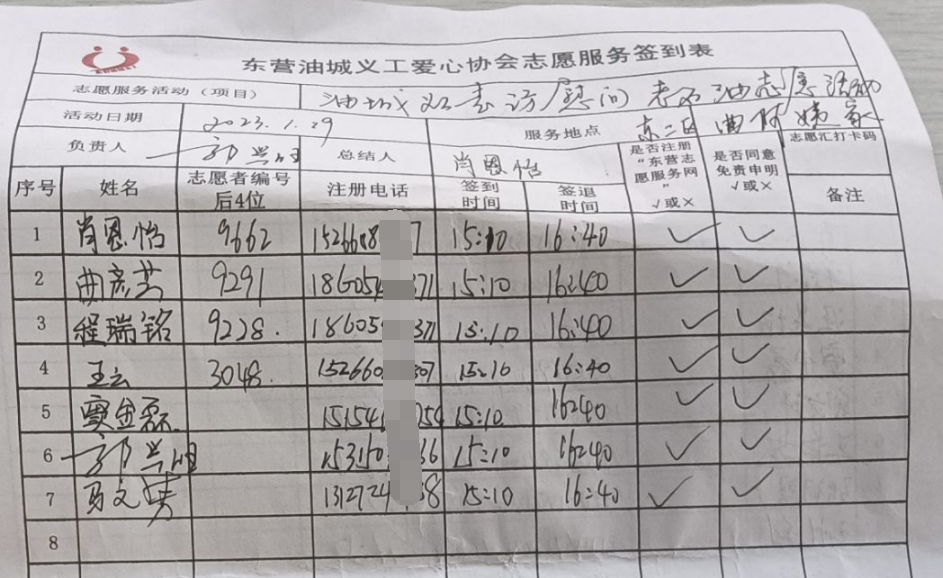 东营油城义工爱心协会志愿服务签到表
志愿服务活动（项目） 油城义工走访慰问老石油志愿活动
活动日期 2023.1.29 服务地点 东二区曲阿姨家
负责人 总结人 肖恩怡 是否注册“东营志愿服务网”√或× 是否同意免责申明√或× 志愿汇打卡码
序号 姓名 志愿者编号后4位 注册电话 签到时间 签退时间 备注
1 肖恩怡 9662 1526608 7 15:10 16:40 ✓ ✓
2 曲彦芸 9291 186054 371 15:10 16:40 ✓ ✓
3 程瑞铭 9228. 186054 371 15:10 16:40 ✓ ✓
4 王云 3048. 152660 307 15:10 16:40 ✓ ✓
5 151541 254 15:10 16:40 ✓ ✓
6 153150 36 15:10 16:40 ✓ ✓
7 马文勇 1312724 38 15:10 16:40 ✓ ✓
8